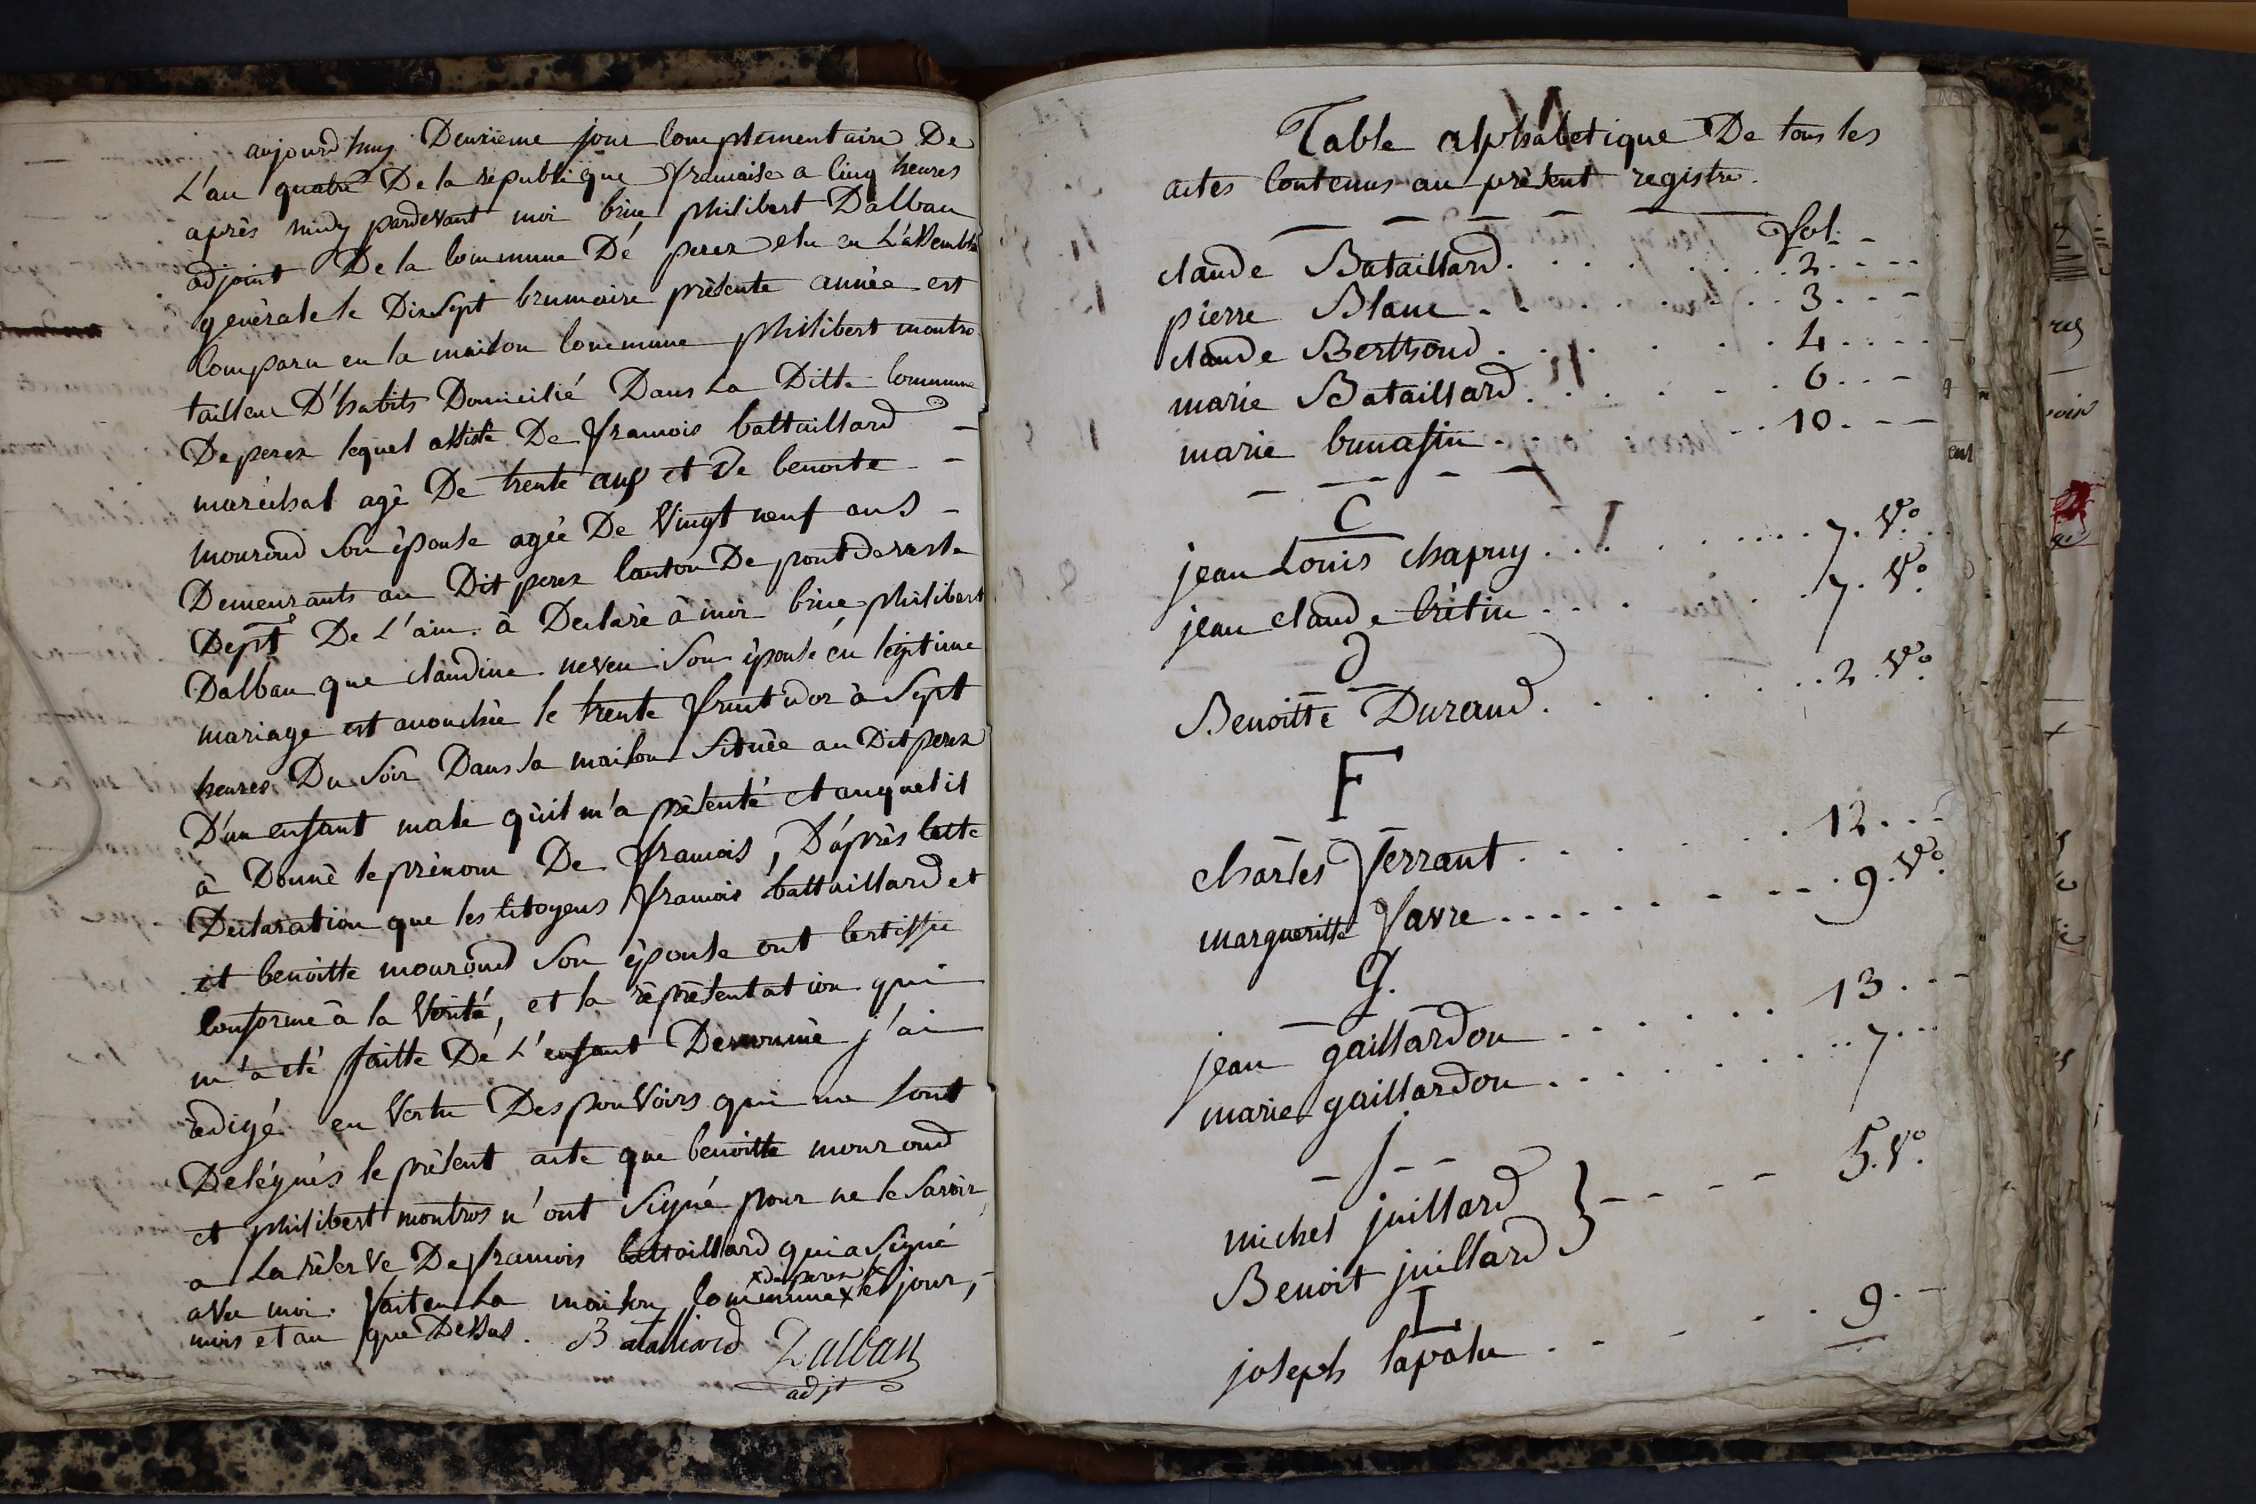 aujourd'huy Deuxieme jour Complementaire De
L'an quatre De la république francaise a cinq heures
après midy pardevant moi brice philibert Dalban
adjoint De la Commune De perex elu en L'assemblée
generale le Dixsept brumaire présente année est
Comparu en la maison Commune philibert montros
tailleur D'habits Domicilié Dans La Ditte Commune
De perex lequel assisté De francois battaillard
maréchal agé De trente ans et De benoite
mouroud Son épouse agée De Vingt neuf ans
Demeurants au Dit perex Canton De pontdevesle
Dept De L'ain. à Declaré à moi brice philibert
Dalban que claudine neveu Son épouse en legitime
mariage est accouchée le trente fructidor à Sept
heures Du Soir Dans Sa maison Située au Dit perex
D'un enfant male qu'il m'a présenté et auquel il
à Donné le prénom De francois, D'aprés Cette
Declaration que les Citoyens francois battaillard et
et benoitte mouroud Son épouse ont Certiffié
Conforme à la Verité, et la réprésentation qui
m'a eté faitte De L'enfant Denommé j'ai
rédigé en Vertu Des pouvoirs qui me Sont
Delégués le présent acte que benoitte mouroud
et philibert montros n'ont Signé pour ne le Savoir
a La réserve De francois battaillard qui a Signé
x de perex x
avec moi. fait en La maison Commune x les jour,
mois et an que Dessus. Batalliard Dalban
adjt
Table alphabetique De tous les
actes Contenus au présent registre.
fol.
claude Bataillard. . . . . . . . 2. - - -
pierre Blanc. . . . . . . . 3. - - -
claude Berthoud. . . . . . . . 4. . . .
marie Bataillard. . . . . . . 6. . . -
marie bunastin . . . . 10. - - -
C
jean Louis chapuy . . . . . . . . . 7. Vo.
jean claude Crétin . . . . . . . 7. Vo.
d
Benoitte Durand. . . . . . . . 2. Vo.
F
charles ferrant. . . . . . . 12. . . .
margueritte favre . . . . . . . . 9. Vo.
G.
jean gaillardon . . . . . . 13. . . -
marie gaillardon . . . . . . . . 7. . .
J
michel juillard } - - - - - 5. Vo.
Benoit juillard
L
joseph lapalu . . . . . . 9. - -